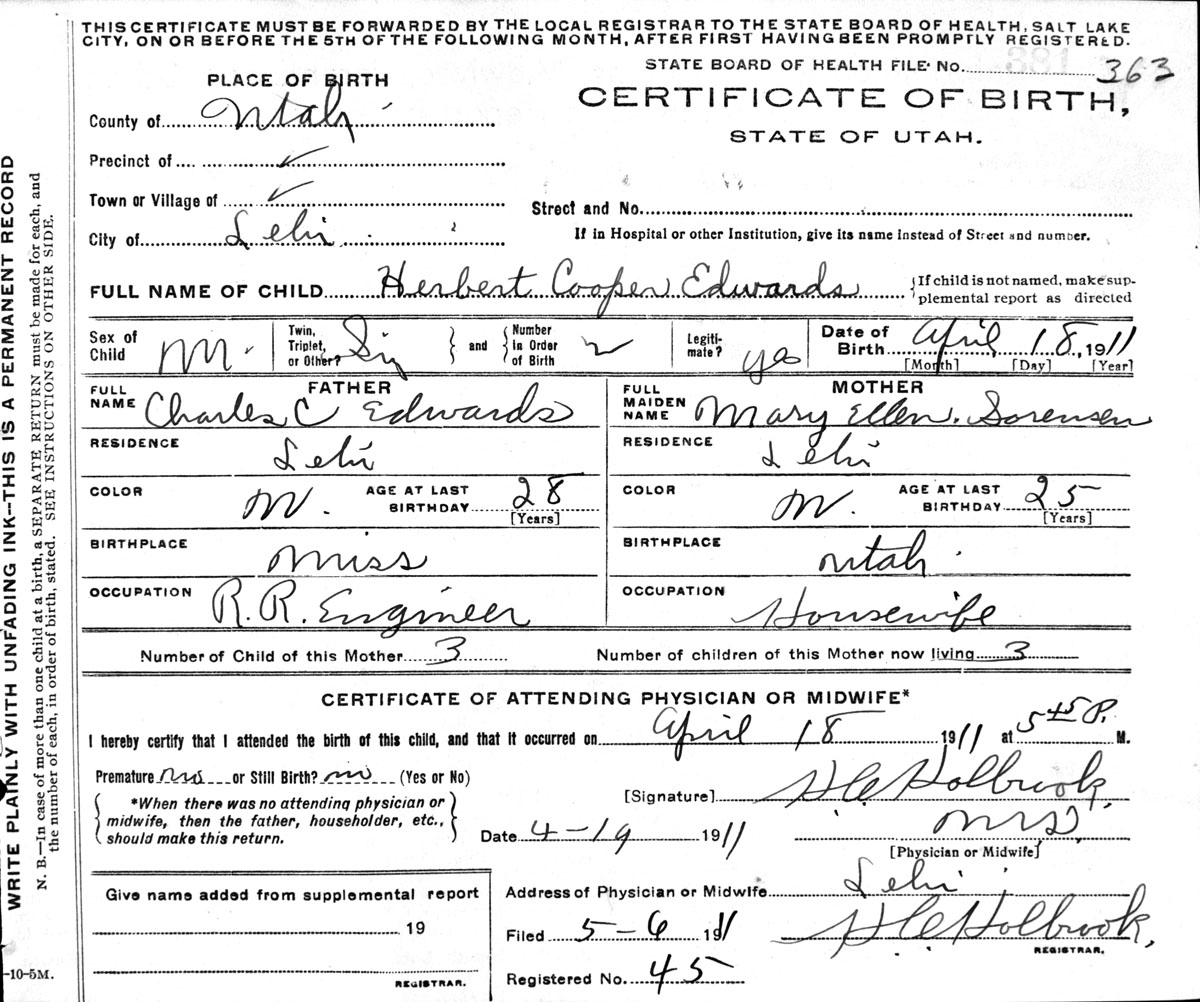 THIS CERTIFICATE MUST BE FORWARDED BY THE LOCAL REGISTRAR TO THE STATE BOARD OF HEALTH, SALT LAKE
CITY, ON OR BEFORE THE 5TH OF THE FOLLOWING MONTH, AFTER FIRST HAVING BEEN PROMPTLY REGISTERED.
STATE BOARD OF HEALTH FILE No. 363
PLACE OF BIRTH
CERTIFICATE OF BIRTH,
STATE OF UTAH.
County of Utah
Precinct of ✓
Town or Village of ✓
Street and No.
City of Lehi
If in Hospital or other Institution, give its name instead of Street and number.
FULL NAME OF CHILD Herbert Cooper Edwards {If child is not named, make sup-
plemental report as directed
Sex of Child M. Twin, Triplet, or Other? Sin } and { Number In Order of Birth 2 Legiti-mate? yes Date of Birth April 18, 1911
[Month] [Day] [Year]
FATHER
FULL NAME Charles C Edwards
RESIDENCE Lehi
COLOR W. AGE AT LAST BIRTHDAY 28
[Years]
BIRTHPLACE Miss
OCCUPATION R.R. Engineer
MOTHER
FULL MAIDEN NAME Mary Ellen. Sorensen
RESIDENCE Lehi
COLOR W. AGE AT LAST BIRTHDAY 25
[Years]
BIRTHPLACE Utah
OCCUPATION Housewife
Number of Child of this Mother 3 Number of children of this Mother now living 3
CERTIFICATE OF ATTENDING PHYSICIAN OR MIDWIFE*
I hereby certify that I attended the birth of this child, and that it occurred on April 18 1911 at 5 45 P. M.
Premature no or Still Birth? no (Yes or No)
*When there was no attending physician or
midwife, then the father, householder, etc.,
should make this return.
[Signature] H C Holbrook
Date 4-19 1911
[Physician or Midwife]
Address of Physician or Midwife Lehi
Filed 5-6 1911 H C Holbrook,
REGISTRAR.
Registered No. 45
Give name added from supplemental report
19
REGISTRAR.
WRITE PLAINLY WITH UNFADING INK--THIS IS A PERMANENT RECORD
N. B.—In case of more than one child at a birth, a SEPARATE RETURN must be made for each, and
the number of each, in order of birth, stated. SEE INSTRUCTIONS ON OTHER SIDE.
-10-5M.